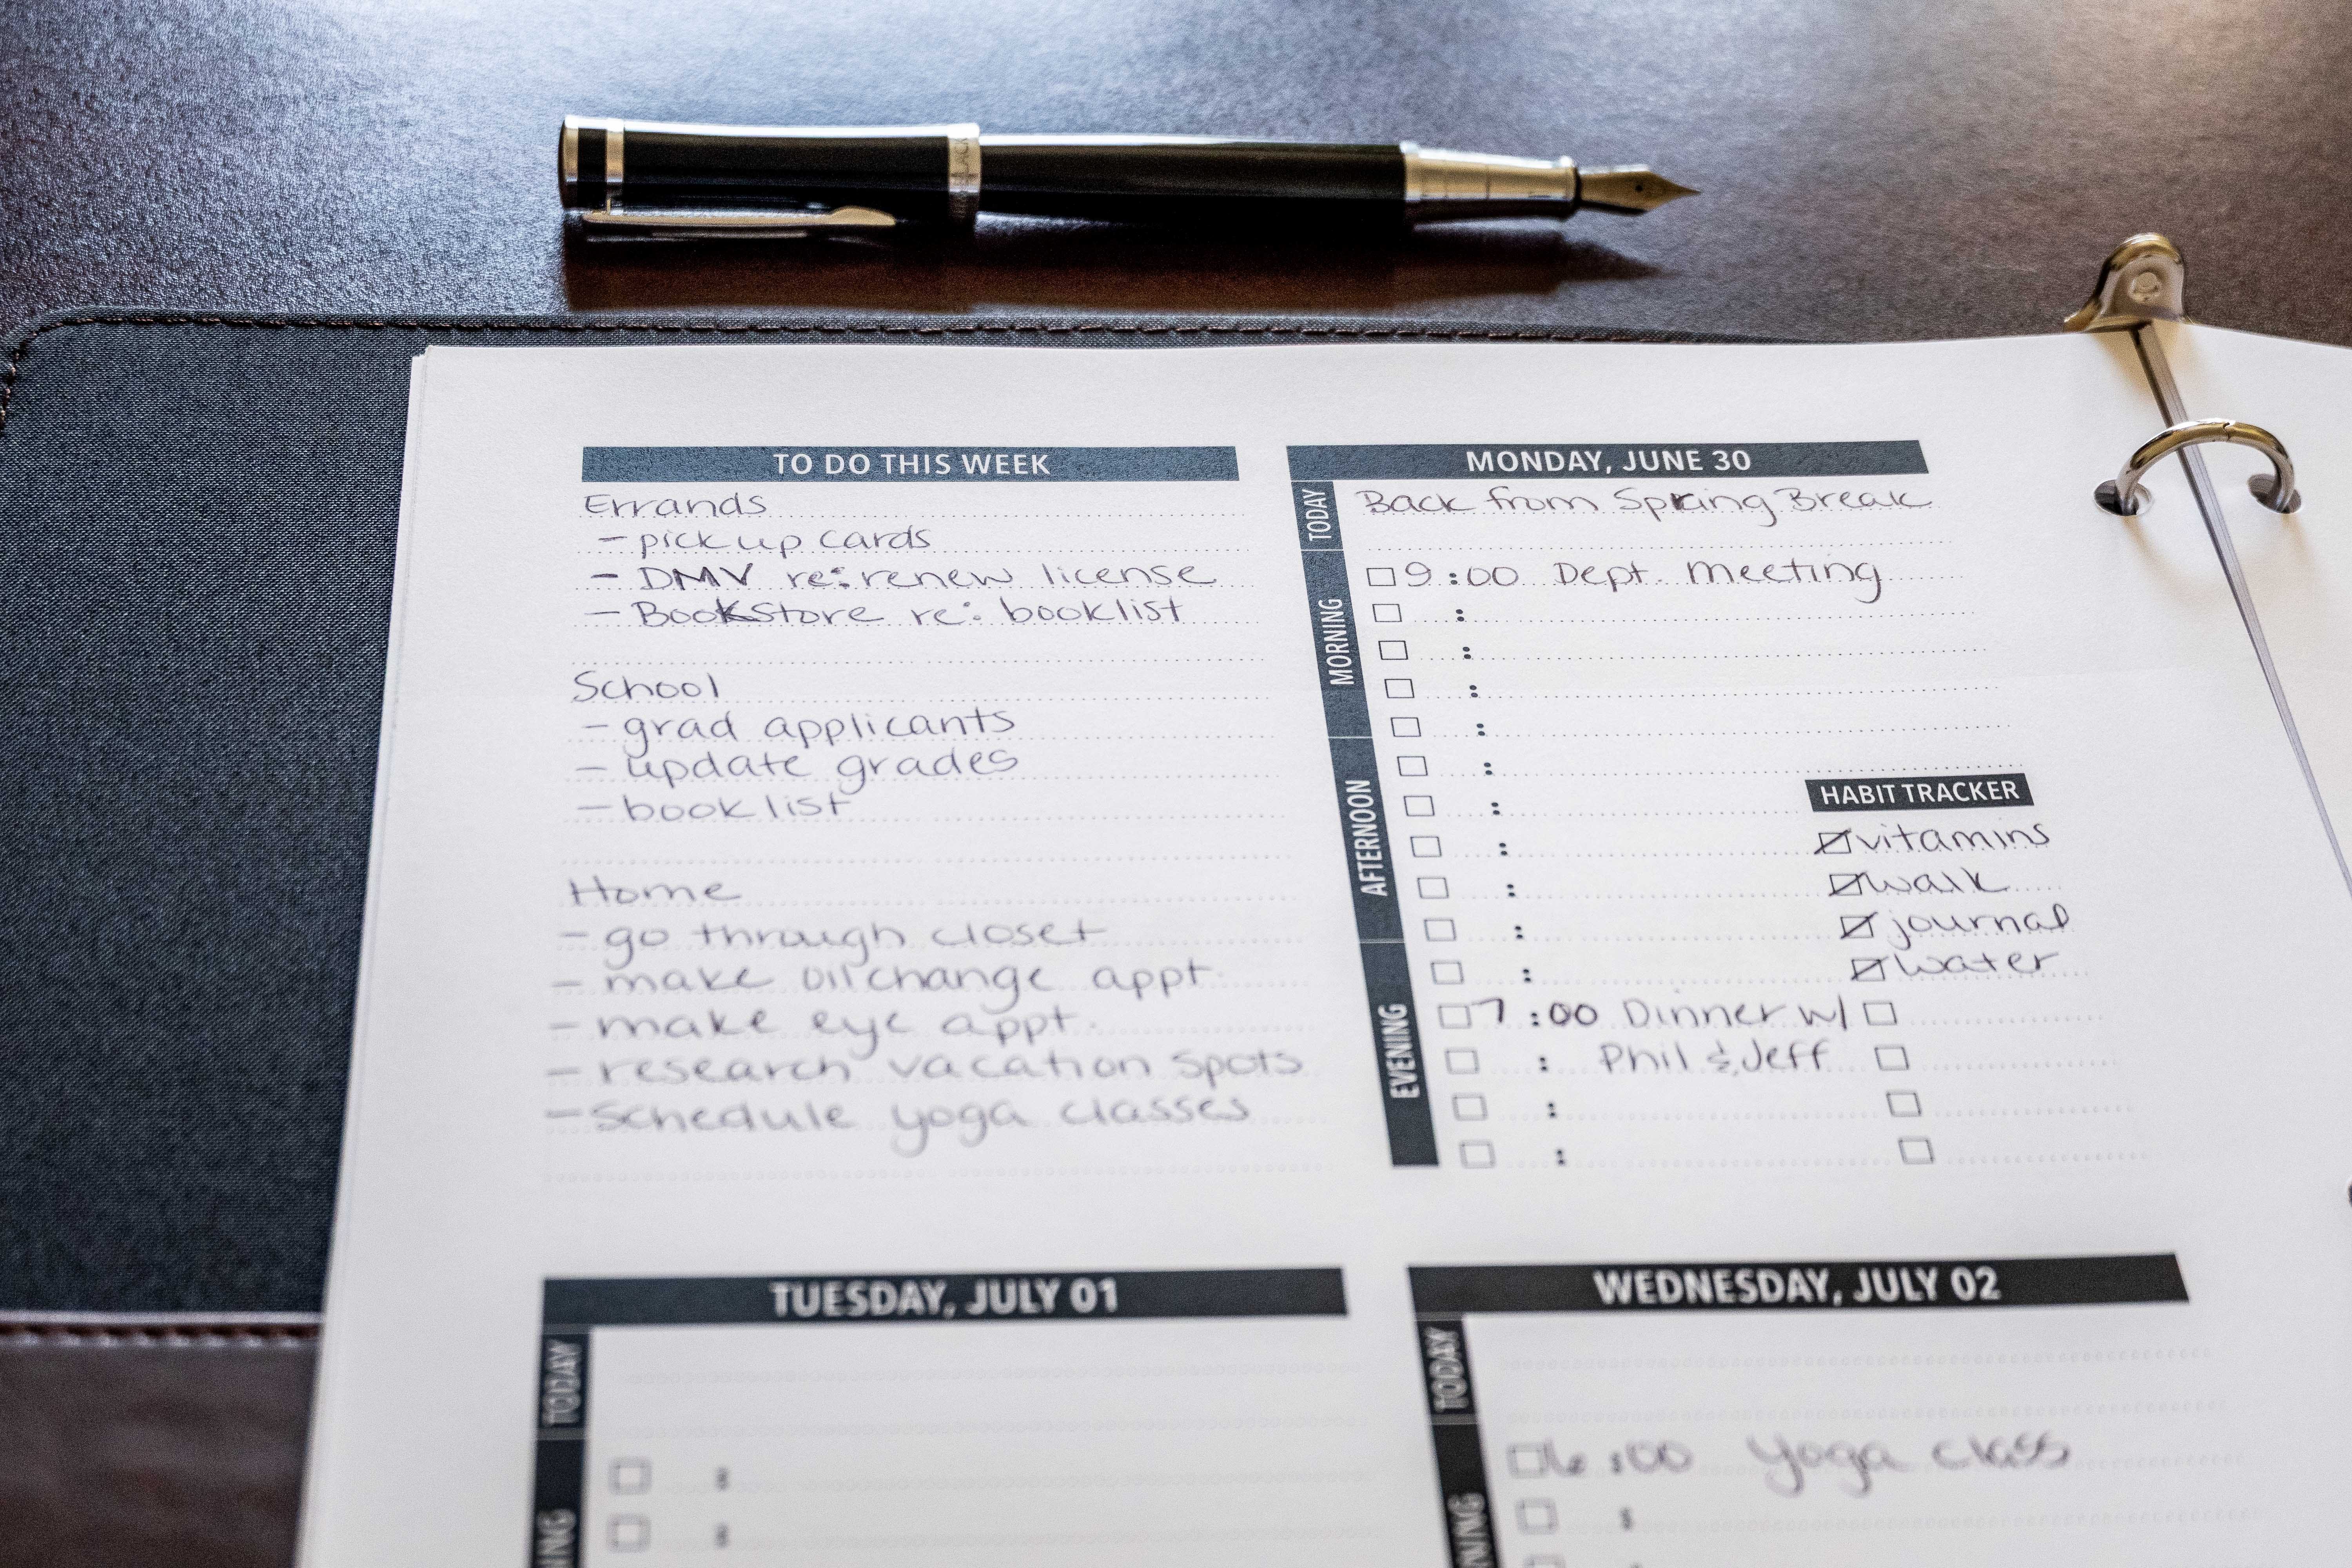 TO DO THIS WEEK
Errands
- pick up cards
- DMV re: renew license
- Bookstore re: booklist
School
- grad applicants
- update grades
- booklist
Home
- go through closet
- make oil change appt.
- make eye appt.
- research vacation spots
- Schedule yoga classes
MONDAY, JUNE 30
TODAY
Back from Spring Break
MORNING
9:00 Dept. Meeting
:
:
:
:
AFTERNOON
:
:
:
:
:
:
HABIT TRACKER
vitamins
walk
journal
water
EVENING
7:00 Dinner w/
: Phil & Jeff
:
:
TUESDAY, JULY 01
TODAY
:
:
WEDNESDAY, JULY 02
TODAY
6:00 Yoga class
: